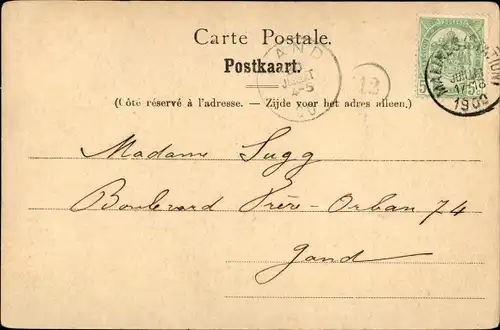 Carte Postale.
Postkaart.
(Côté réservé à l'adresse. — Zijde voor het adres alleen.)
GAND
JUILLET
4-5
12
MALINES (STATION)
JUILLET
1900
Madame Sugg
Boulevard Frère-Orban 74
Gand